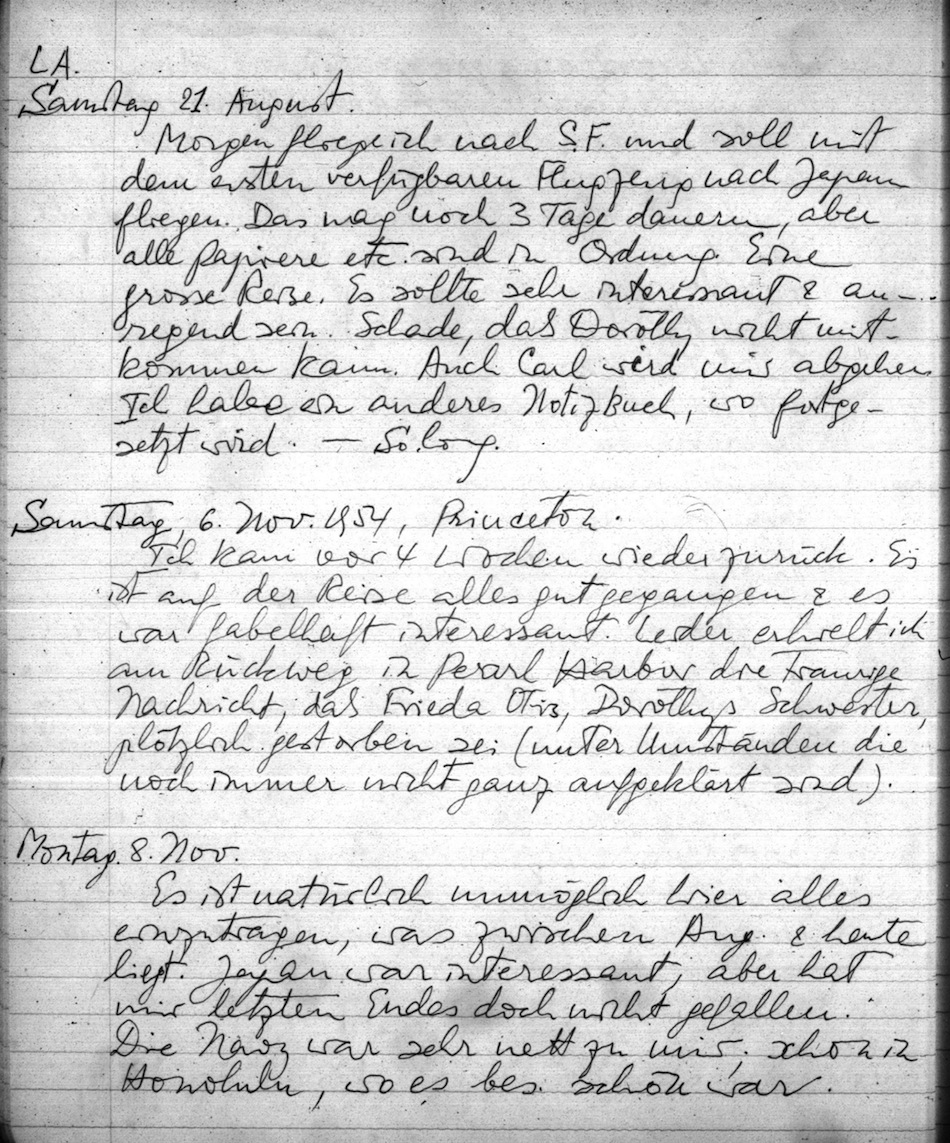 LA.
Samstag 21. August.
Morgen fliege ich nach S.F. und soll mit
dem ersten verfügbaren Flugzeug nach Japan
fliegen. Das mag noch 3 Tage dauern, aber
alle Papiere etc. sind in Ordnung. Eine
grosse Reise. Es sollte sehr interessant & an-
regend sein. Schade, das Dorothy nicht mit-
kommen kann. Auch Carl wird mir abgehen.
Ich habe ein anderes Notizbuch, wo fortge-
setzt wird. — So long.
Samstag, 6. Nov. 1954, Princeton.
Ich kam vor 4 Wochen wieder zurück. Es
ist auf der Reise alles gut gegangen & es
war fabelhaft interessant. Leider erhielt ich
am Rückweg in Pearl Harbor die traurige
Nachricht, das Frieda Otis, Dorothys Schwester,
plötzlich gestorben sei (unter Umständen die
noch immer nicht ganz aufgeklärt sind).
Montag. 8. Nov.
Es ist natürlich unmöglich hier alles
einzutragen, was zwischen Aug. & heute
liegt. Japan war interessant, aber hat
mir letzten Endes doch nicht gefallen.
Die Navy war sehr nett zu mir. schon in
Honolulu, wo es bes. schön war.